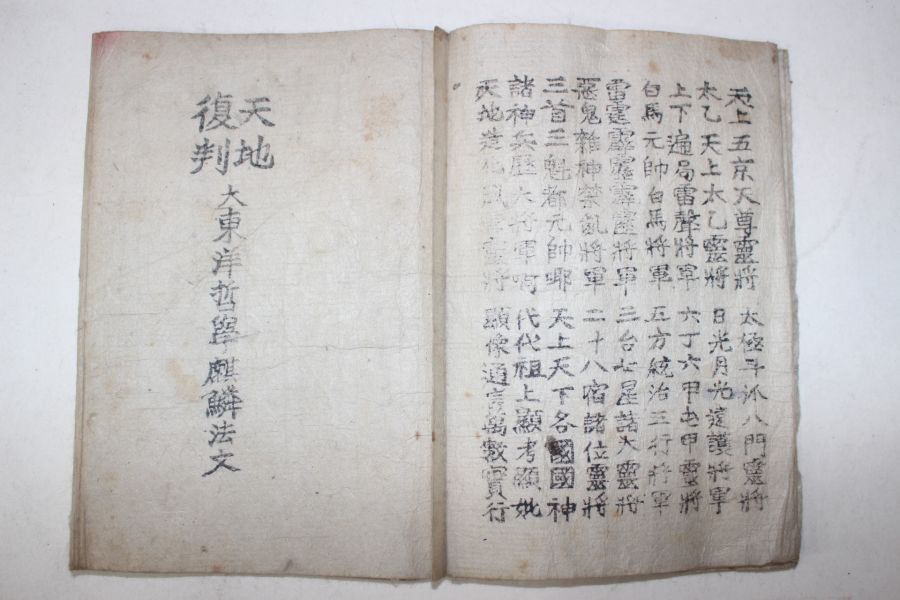 天上五京天尊靈將 太極斗 八門靈將
太乙天上太乙靈將 日光月光遠護將軍
上下遍局雷聲將軍 六丁六甲屯甲靈將
白馬元帥白馬將軍 五方統治三行將軍
雷霆霹靂霹靂將軍 三台七星諸大靈將
惡鬼雜神禁亂將軍 二十八宿諸位靈將
三首三魁都元帥哪 天上天下各國國神
諸神兵歷大將軍啊 代代祖上顯考顯妣
天地造化 將 顯像通言萬數實行
天地
復判
大東洋哲學麒麟法文